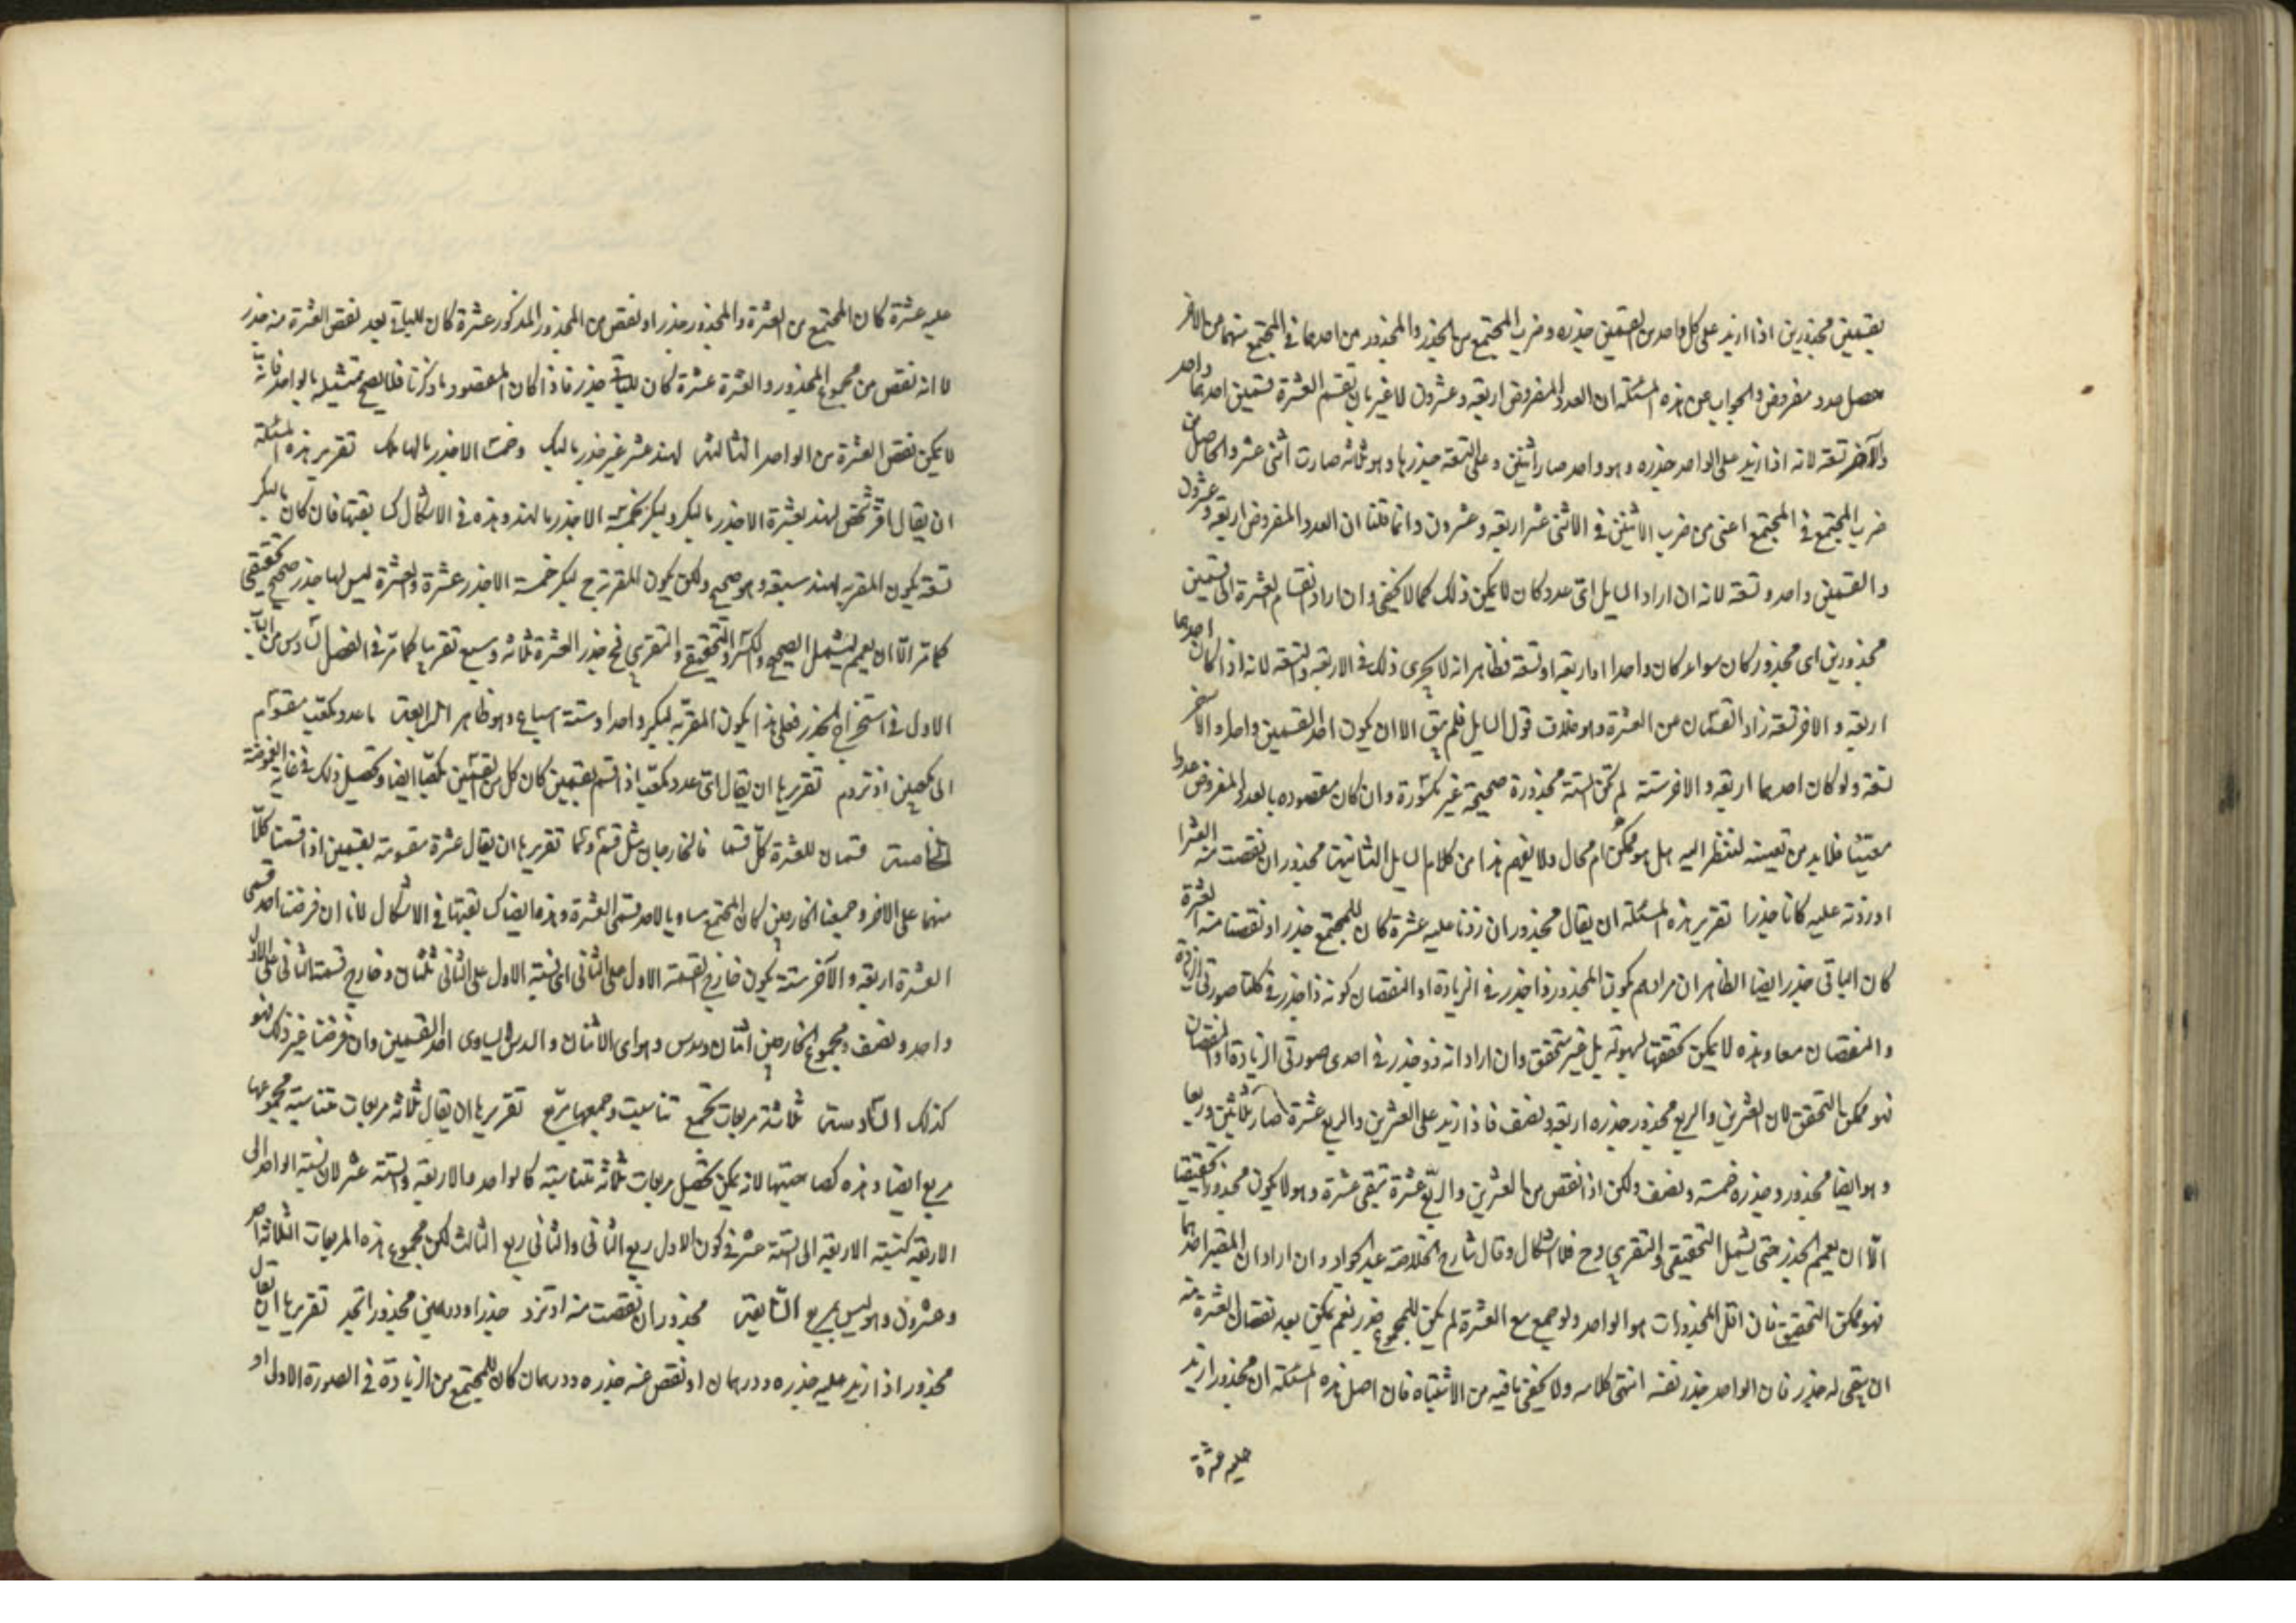 بقسمين مجذورين اذا ازيد على كل واحد من القسمين جذره وضرب المجتمع من الجذر والمجذور من احدهما فى المجتمع منهما من الاخر
حصل عدد مفروض والجواب عن هذه المسئلة ان العدد المفروض اربعة وعشرون لا غير بان تقسم العشرة قسمين احدهما واحد
والآخر تسعة لانه اذا زيد على الواحد جذره وهو واحد صار اثنين وعلى التسعة جذرها وهو ثلثة صارت اثنى عشر والحاصل من
ضرب المجتمع فى المجتمع اعنى من ضرب الاثنين فى الاثنى عشر اربعة وعشرون وانما قلنا ان العدد المفروض اربعة وعشرون
والقسمين واحد وتسعة لانه ان اراد السايل اى عدد كان لا يمكن ذلك كما لا يخفى وان اراد انقسام العشرة الى قسمين
مجذورين اى مجذور كان سواء كان واحدا او اربعة او تسعة فظاهر انه لا يجرى ذلك فى الاربعة والتسعة لانه اذا كان احدهما
اربعة والاخر تسعة زاد القسمان عن العشرة وهو خلاف قول السايل فلم يبق الا ان يكون احد القسمين واحد والآخر
تسعة ولو كان احدهما اربعة والاخر ستة لم تكن الستة مجذورة صحيحة غير مكسورة وان كان مقصوده بالعدد المفروض عددا
معينا فلا بد من تعيينه لننظر اليه هل هو ممكن ام محال ولا يفهم هذا من كلام السايل الثانية مجذور ان نقصت منه العشرا
او زدته عليه كانا جذرا تقرير هذه المسئلة ان يقال مجذور ان زدنا عليه عشرة كان للمجتمع جذر او نقصنا منه العشرة
كان الباقى جذر ايضا الظاهر ان مرادهم بكون المجذور ذا جذر فى الزيادة او النقصان كونه ذا جذر فى كلتا صورتى الزيادة
والنقصان معا وهذه لا يمكن تحققها بسهولة بل غير متحقق وان اراد انه ذو جذر فى احدى صورتى الزيادة او النقصان
فهو ممكن التحقق لان العشرين والربع مجذور جذره اربعة ونصف فاذا زيد على العشرين والربع عشرة صار ثلثين وربعا
وهو ايضا مجذور وجذره خمسة ونصف ولكن اذا نقص من العشرين والربع عشرة تبقى عشرة وهو لا يكون مجذورا تحقيقا
الا ان يعمم الجذر حتى يشمل التحقيقى والتقريبى وح فلا اشكال وقال شارح الخلاصة عبد الجواد وان اراد ان المعتبر احدهما
فهو ممكن التحقق فان اقل المجذورات هو الواحد ولو جمع مع العشرة لم يكن للمجموع جذر نعم يمكن بعد نقصان العشرة منه
ان يبقى له جذر فان الواحد جذر نفسه انتهى كلامه ولا يخفى ما فيه من الاشتباه فان اصل هذه المسئلة ان مجذورا زيد
عليه عشرة
عليه عشرة كان المجتمع من العشرة والمجذور جذر او نقص من المجذور المذكور عشرة كان للباقى بعد نقص العشرة منه جذر
لا انه نقص من مجموع المجذور والعشرة عشرة كان للباقى جذر فاذا كان المقصود ما ذكرنا فلا يصح تمثيله بالواحد فانه
لا يمكن نقص العشرة من الواحد الثالثة لهند عشر غير جذر ما لبك وخمت الا جذر ما لهامك تقرير هذه المسئلة
ان يقال اقر شخص لهند بعشرة الا جذر ما لبكر ولبكر بخمسة الا جذر ما لهند وهذه فى الاشكال كسابقتها فان كان ما لبكر
تسعة يكون المقر به لهند سبعة وهو صحيح ولكن يكون المقر به ح لبكر خمسة الا جذر عشرة والعشرة ليس لها جذر صحيح تحقيقى
كما مر الا ان يعمم ليشمل الصحيح والكسر والتحقيقى والتقريبى فح جذر العشرة ثلثة وسبع تقريبا كما مر فى الفصل السادس من الباب
الاول فى استخراج الجذر فعلى هذا يكون المقر به لبكر واحدا وستة اسباع وهو ظاهر الرابعة ما عدد مكعب مقسوم
الى مكعبين اذ تروم تقريرها ان يقال اى عدد مكعب اذا قسم بقسمين كان كل من القسمين مكعبا ايضا وتحصيل ذلك فى غاية الغموضة
الخامسة قسمان للعشرة كل قسما فالخارجان مثل قسم وتما تقريرها ان يقال عشرة مقسومة بقسمين اذا قسمنا كلا
منهما على الاخر وجمعنا الخارجين كان المجتمع مساويا لاحد قسمى العشرة وهذه ايضا كسابقتها فى الاشكال لانا ان فرضنا احد قسمى
العشرة اربعة والآخر ستة يكون خارج القسمة الاول على الثانى اى نسبة الاول على الثانى ثلثان وخارج قسمة الثانى على الاول
واحد ونصف ومجموع الخارجين اثنان وسدس وهو اى الاثنان والسدس لا يساوى احد القسمين وان فرضنا غير ذلك فهو
كذلك السادسة ثلاثة مربعات تجمع تناسبت وجمعها مربع تقريرها ان يقال ثلاثة مربعات متناسبة مجموعها
مربع ايضا وهذه كصاحبتها لانه يمكن تحصيل مربعات ثلاثة متناسبة كالواحد والاربعة والستة عشر لان نسبة الواحد الى
الاربعة كنسبة الاربعة الى الستة عشر فى كون الاول ربع الثانى والثانى ربع الثالث لكن مجموع هذه المربعات الثلاثة احد
وعشرون وهو ليس بمربع السابعة مجذور ان نقصت منه او تزد جذرا ودرهمين مجذورا تجد تقريرها ان يقال
مجذور اذا زيد عليه جذره ودرهمان او نقص عنه جذره ودرهمان كان للمجتمع من الزيادة فى الصورة الاولى او